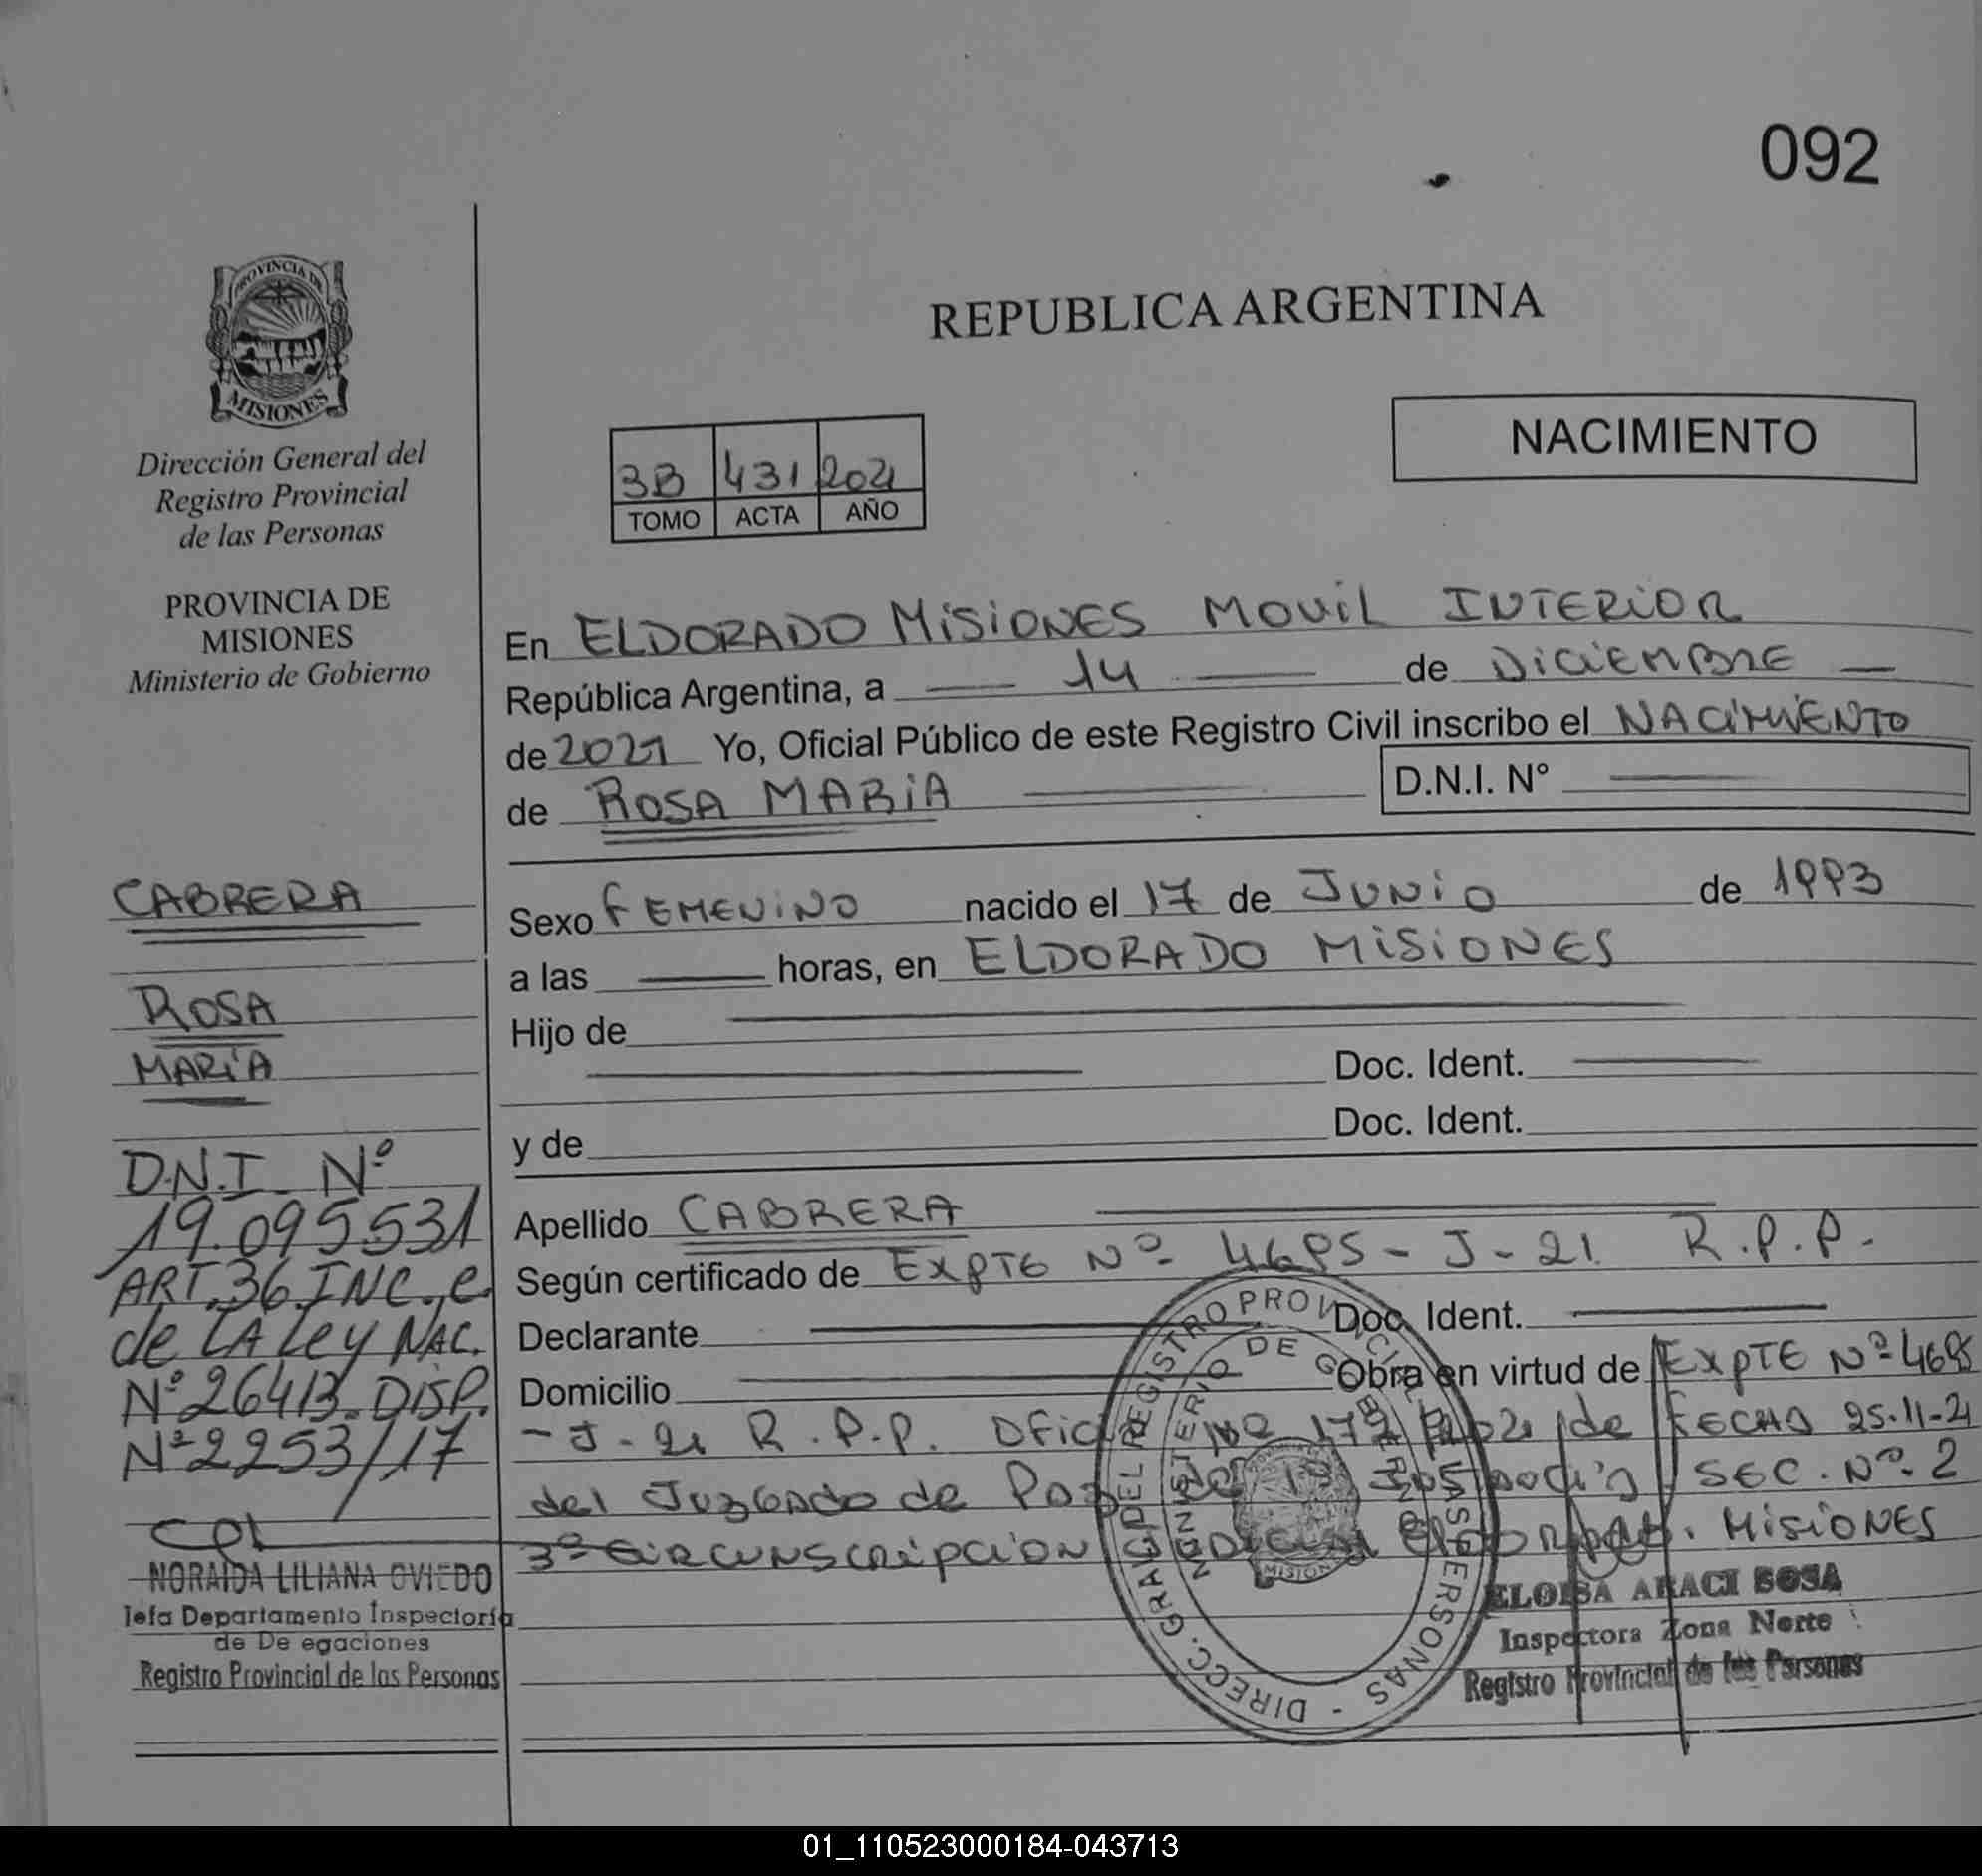 092
PROVINCIA DE
MISIONES
Dirección General del
Registro Provincial
de las Personas
PROVINCIA DE
MISIONES
Ministerio de Gobierno
REPUBLICA ARGENTINA
NACIMIENTO
3B 431 2021
TOMO ACTA AÑO
En ELDORADO MISIONES MOVIL INTERIOR
República Argentina, a 14 de DICIEMBRE
de 2021 Yo, Oficial Público de este Registro Civil inscribo el NACIMIENTO
de ROSA MARIA D.N.I. N°
Sexo FEMENINO nacido el 17 de JUNIO de 1993
a las horas, en ELDORADO MISIONES
Hijo de
Doc. Ident.
y de Doc. Ident.
Apellido CABRERA
Según certificado de EXPTE Nº 4695 - J - 21 R.P.P.
Declarante Doc. Ident.
Domicilio Obra en virtud de EXPTE Nº 4695
- J - 21 R.P.P. de FECHA 25-11-21
del Juzgado de Paz SEC. Nº 2
3ª CIRCUNSCRIPCION MISIONES
CABRERA
ROSA
MARIA
D.N.I. Nº
19.095.531
ART. 36 INC. C
de LA Ley NAC.
Nº 26413. DISP.
Nº 2253/17
NORAIDA LILIANA OVIEDO
Jefa Departamento Inspectoría
de De egaciones
Registro Provincial de las Personas
DIRECC. GRAL. DEL REGISTRO PROVINCIAL DE LAS PERSONAS
MINISTERIO DE GOBIERNO
MISIONES
ELOISA ARACI SOSA
Inspectora Zona Norte
Registro Provincial de las Personas
01_110523000184-043713